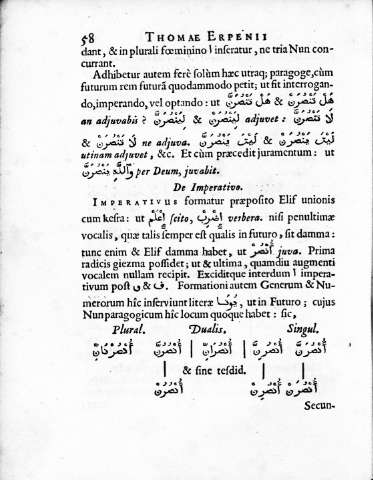 58 THOMAE ERPENII
dant, & in plurali fœminino ا inseratur, ne tria Nun con-
currant.
Adhibetur autem ferè solùm hæc utraq; paragoge, cùm
futurum rem futurā quodammodo petit; ut fit interrogan-
do, imperando, vel optando: ut هَلْ تَنْصُرَنَّ & هَلْ تَنْصُرَنْ
an adjuvabis? لِيَنْصُرَنَّ & لِيَنْصُرَنْ adjuvet: لَا تَنْصُرَنَّ
& لَا تَنْصُرَنْ ne adjuva. لَيْتَ يَنْصُرَنَّ & لَيْتَ يَنْصُرَنْ
utinam adjuvet, &c. Et cùm præcedit juramentum: ut
وَاللّٰهِ يَنْصُرَنَّ per Deum, juvabit.
De Imperativo.
IMPERATIVUS formatur præposito Elif unionis
cum kesra: ut اِعْلَمْ scito, اِضْرِبْ verbera. nisi penultimæ
vocalis, quæ talis semper est qualis in futuro, sit damma:
tunc enim & Elif damma habet, ut اُنْصُرْ juva. Prima
radicis giezma possidet; ut & ultima, quamdiu augmenti
vocalem nullam recipit. Exciditque interdum ا impera-
tivum post و & ف. Formationi autem Generum & Nu-
merorum hîc inserviunt literæ يُونَا, ut in Futuro; cujus
Nun paragogicum hîc locum quoque habet: sic,
Plural. Dualis. Singul.
اُنْصُرْنَانِّ اُنْصُرُنَّ | اُنْصُرَانِّ | اُنْصُرِنَّ اُنْصُرَنَّ
| & sine tesdid. | |
اُنْصُرُنْ اُنْصُرِنْ اُنْصُرَنْ
Secun-